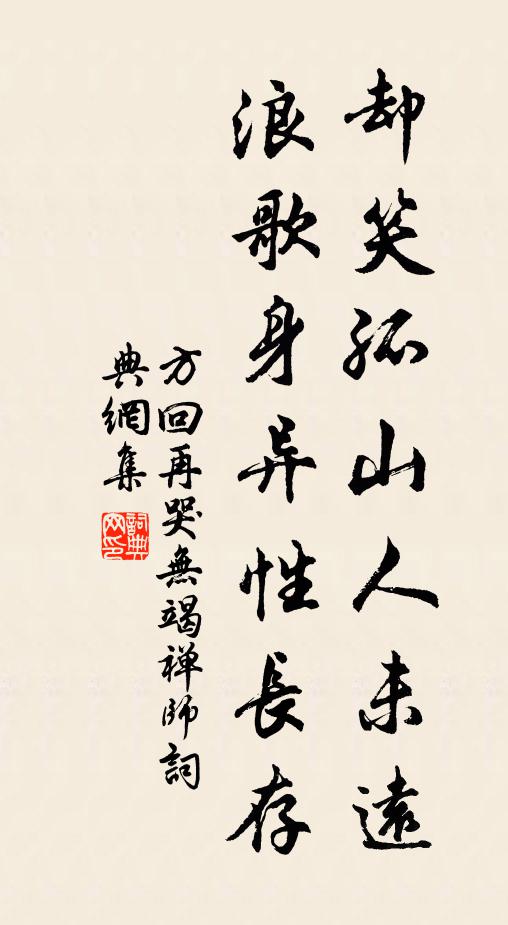 却笑孤山人未遠
浪歌身异性長存
方回再哭無竭禅師詞
典網集
詞典
网印